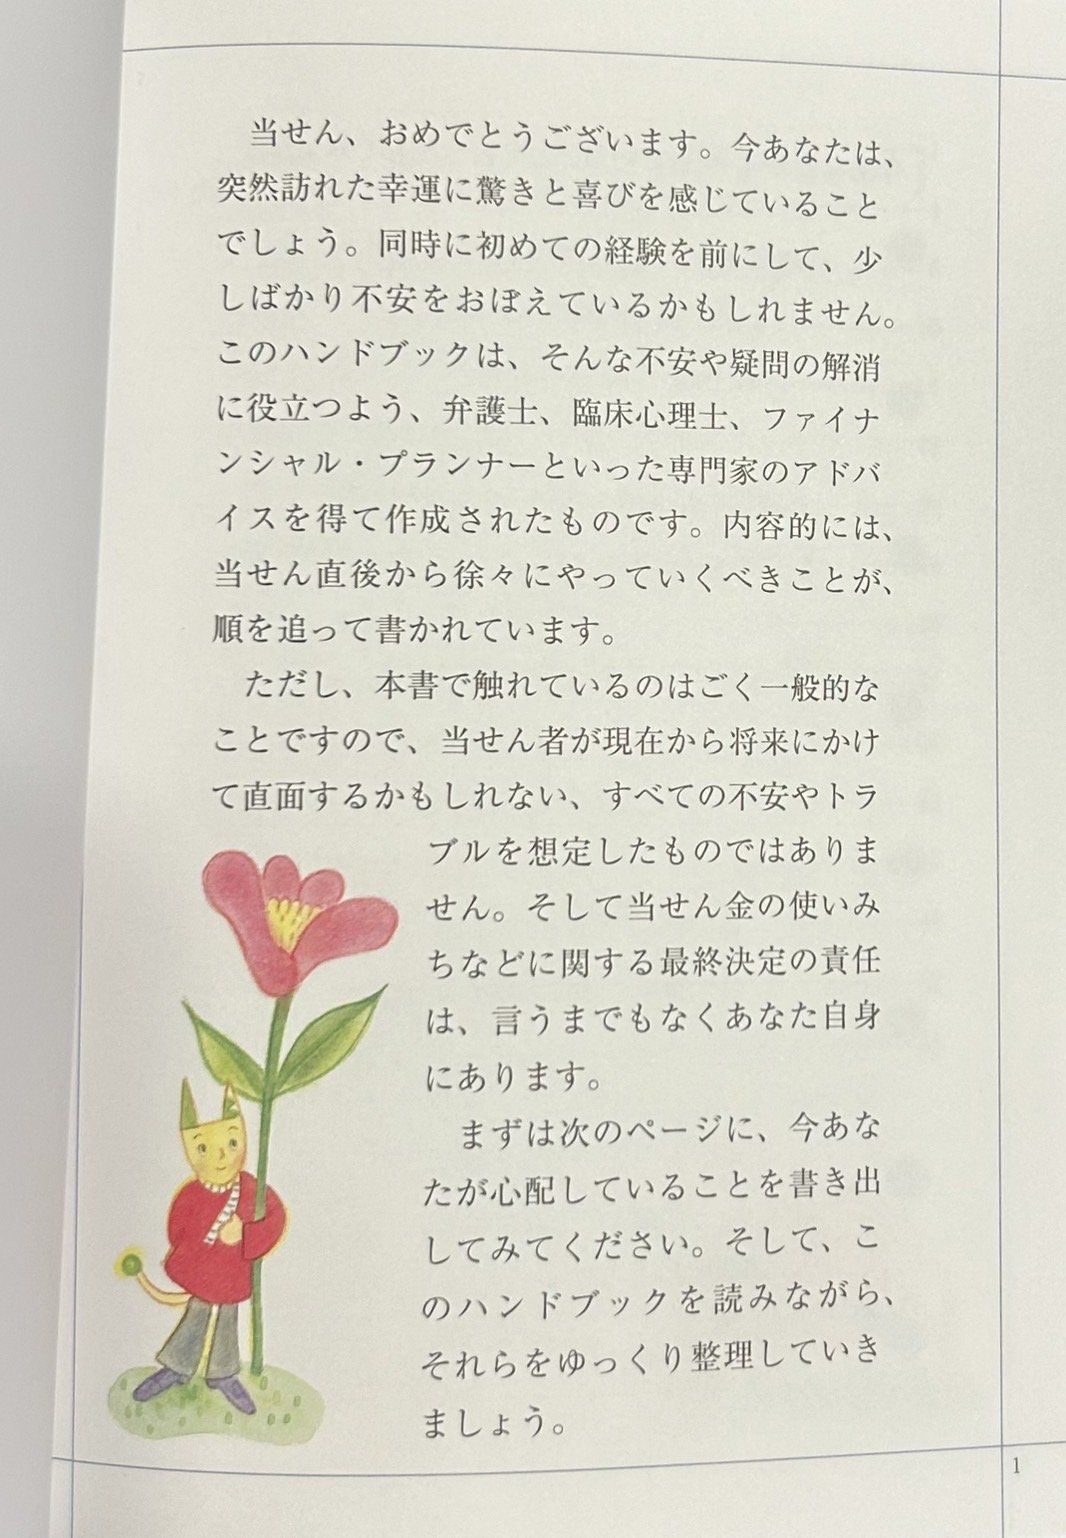 当せん、おめでとうございます。今あなたは、
突然訪れた幸運に驚きと喜びを感じていること
でしょう。同時に初めての経験を前にして、少
しばかり不安をおぼえているかもしれません。
このハンドブックは、そんな不安や疑問の解消
に役立つよう、弁護士、臨床心理士、ファイナ
ンシャル・プランナーといった専門家のアドバ
イスを得て作成されたものです。内容的には、
当せん直後から徐々にやっていくべきことが、
順を追って書かれています。
ただし、本書で触れているのはごく一般的な
ことですので、当せん者が現在から将来にかけ
て直面するかもしれない、すべての不安やトラ
ブルを想定したものではありま
せん。そして当せん金の使いみ
ちなどに関する最終決定の責任
は、言うまでもなくあなた自身
にあります。
まずは次のページに、今あな
たが心配していることを書き出
してみてください。そして、こ
のハンドブックを読みながら、
それらをゆっくり整理していき
ましょう。
1